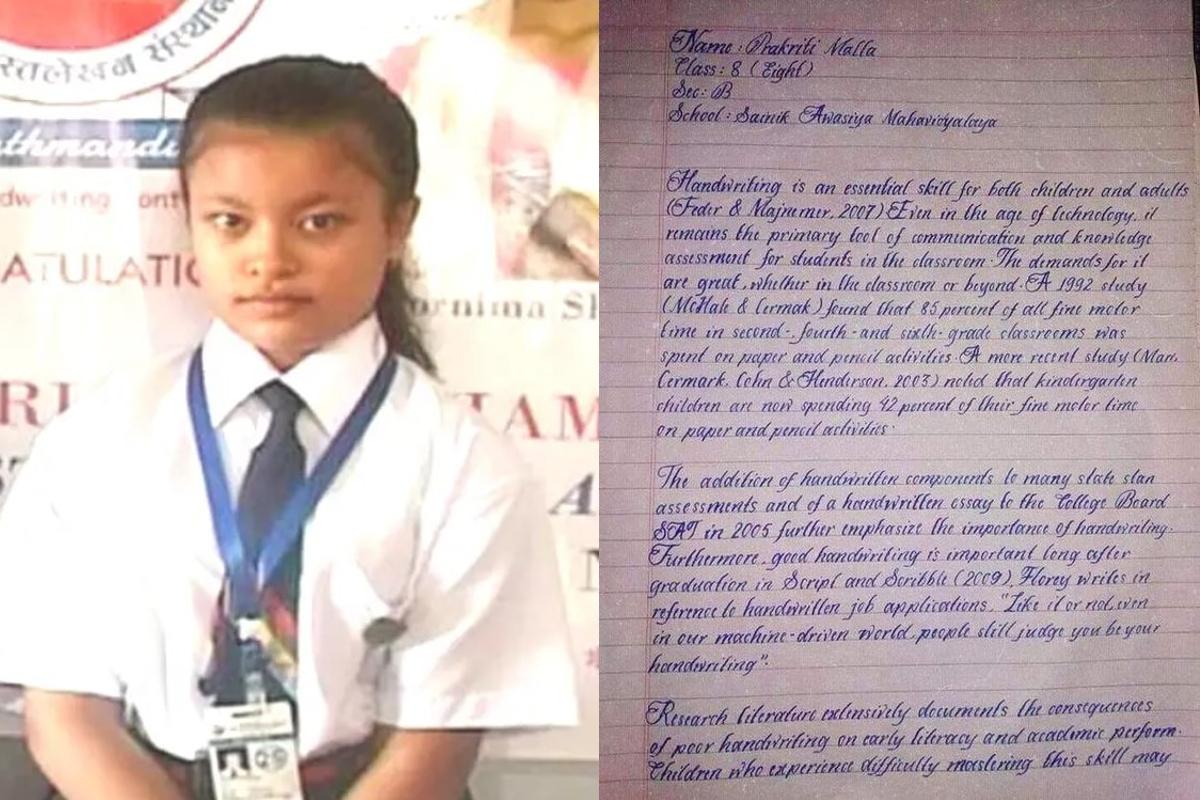 स्तलेखन संस्थान
thmandu
dwriting Cont
ATULATIO
ornima Sh
RI
TAM
A
N
Name : Prakriti Malla
Class : 8 (Eight)
Sec : B
School : Sainik Awasiya Mahavidyalaya
Handwriting is an essential skill for both children and adults
(Feder & Majnemer, 2007) Even in the age of technology, it
remains the primary tool of communication and knowledge
assessment for students in the classroom. The demands for it
are great, whether in the classroom or beyond. A 1992 study
(McHale & Cermak) found that 85 percent of all fine motor
time in second-, fourth-and sixth-grade classrooms was
spent on paper and pencil activities. A more recent study (Marr,
Cermark, Cohn & Henderson, 2003) noted that kindergarten
children are now spending 42 percent of their fine motor time
on paper and pencil activities.
The addition of handwritten components to many state stan
assessments and of a handwritten essay to the College Board
SAT in 2005 further emphasize the importance of handwriting.
Furthermore, good handwriting is important long after
graduation in Script and Scribble (2009), Florey writes in
reference to handwritten job applications, "Like it or not, even
in our machine-driven world, people still judge you be your
handwriting".
Research literature extensively documents the consequences
of poor handwriting on early literacy and academic perform.
Children who experience difficully mastering this skill may